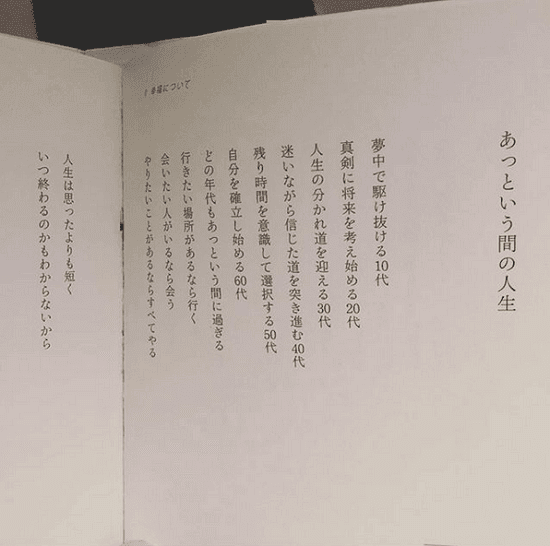 あっという間の人生
夢中で駆け抜ける10代
真剣に将来を考え始める20代
人生の分かれ道を迎える30代
迷いながら信じた道を突き進む40代
残り時間を意識して選択する50代
自分を確立し始める60代
どの年代もあっという間に過ぎる
行きたい場所があるなら行く
会いたい人がいるなら会う
やりたいことがあるならすべてやる
1 幸福について
人生は思ったよりも短く
いつ終わるのかもわからないから